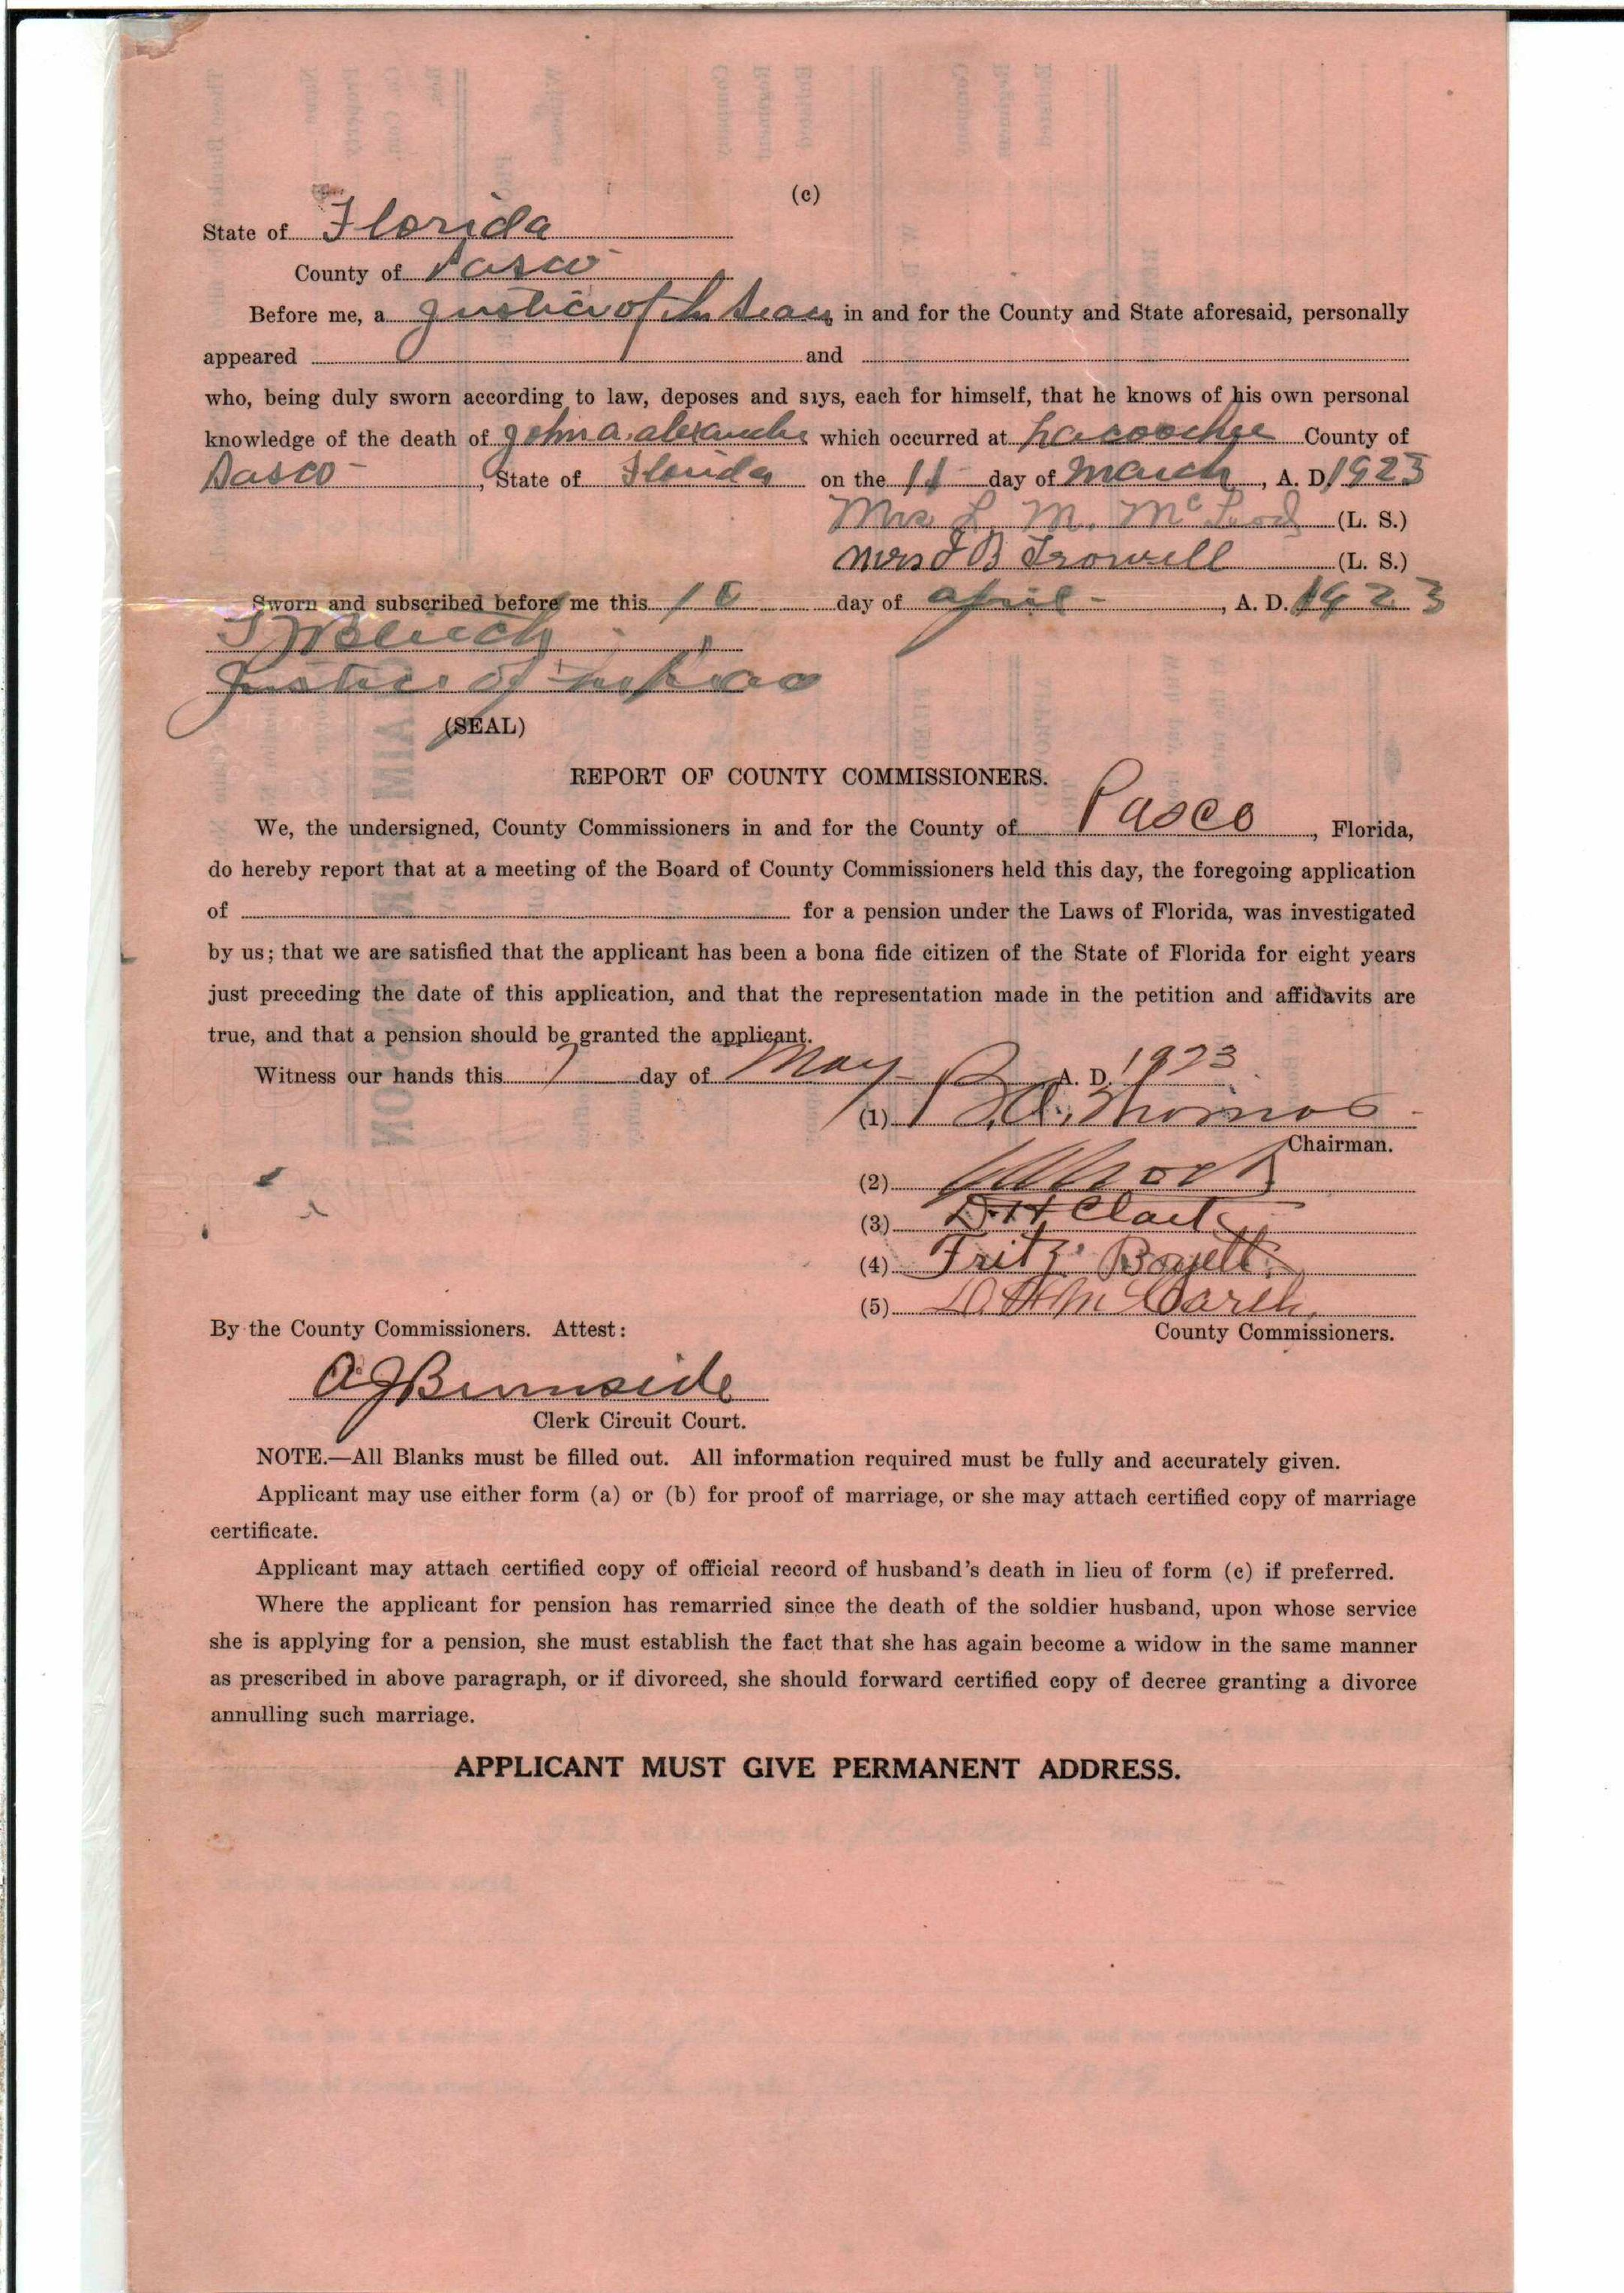 (c)
State of Florida
County of Pasco
Before me, a Justice of the Peace in and for the County and State aforesaid, personally
appeared and
who, being duly sworn according to law, deposes and says, each for himself, that he knows of his own personal
knowledge of the death of John A. Alexander which occurred at Lacoochee County of
Pasco , State of Florida on the 11 day of March, A. D. 1923
Mrs L. M. McLeod (L. S.)
Mrs J B Trowell (L. S.)
Sworn and subscribed before me this day of April, A. D. 1923
Justice of the Peace
(SEAL)
REPORT OF COUNTY COMMISSIONERS.
We, the undersigned, County Commissioners in and for the County of Pasco, Florida,
do hereby report that at a meeting of the Board of County Commissioners held this day, the foregoing application
of for a pension under the Laws of Florida, was investigated
by us; that we are satisfied that the applicant has been a bona fide citizen of the State of Florida for eight years
just preceding the date of this application, and that the representation made in the petition and affidavits are
true, and that a pension should be granted the applicant.
Witness our hands this 7 day of May A. D. 1923
(1) Thomas
Chairman.
(2)
(3) D. H. Clark
(4) Fritz Boyett
(5)
County Commissioners.
By the County Commissioners. Attest:
A J Burnside
Clerk Circuit Court.
NOTE.—All Blanks must be filled out. All information required must be fully and accurately given.
Applicant may use either form (a) or (b) for proof of marriage, or she may attach certified copy of marriage
certificate.
Applicant may attach certified copy of official record of husband's death in lieu of form (c) if preferred.
Where the applicant for pension has remarried since the death of the soldier husband, upon whose service
she is applying for a pension, she must establish the fact that she has again become a widow in the same manner
as prescribed in above paragraph, or if divorced, she should forward certified copy of decree granting a divorce
annulling such marriage.
APPLICANT MUST GIVE PERMANENT ADDRESS.